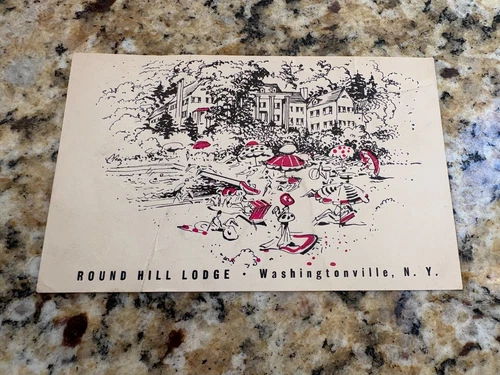 ROUND HILL LODGE - Washingtonville, N. Y.